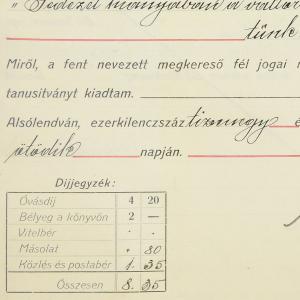 "Fedezet hiányában a vállal
tünk
Miről, a fent nevezett megkereső fél jogai r
tanusitványt kiadtam.
Alsólendván, ezerkilenczszáz tizennégy é
ötödik napján.
Dijjegyzék:
Óvásdij 4 20
Bélyeg a könyvön 2 —
Vitelbér . .
Másolat . 80
Közlés és postabér 1. 35
Összesen 8. 35